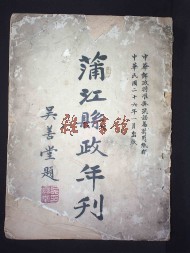 中華郵政特准掛號認為新聞紙類
中華民國二十六年一月出版
蒲江縣政年刊
吳善堂題